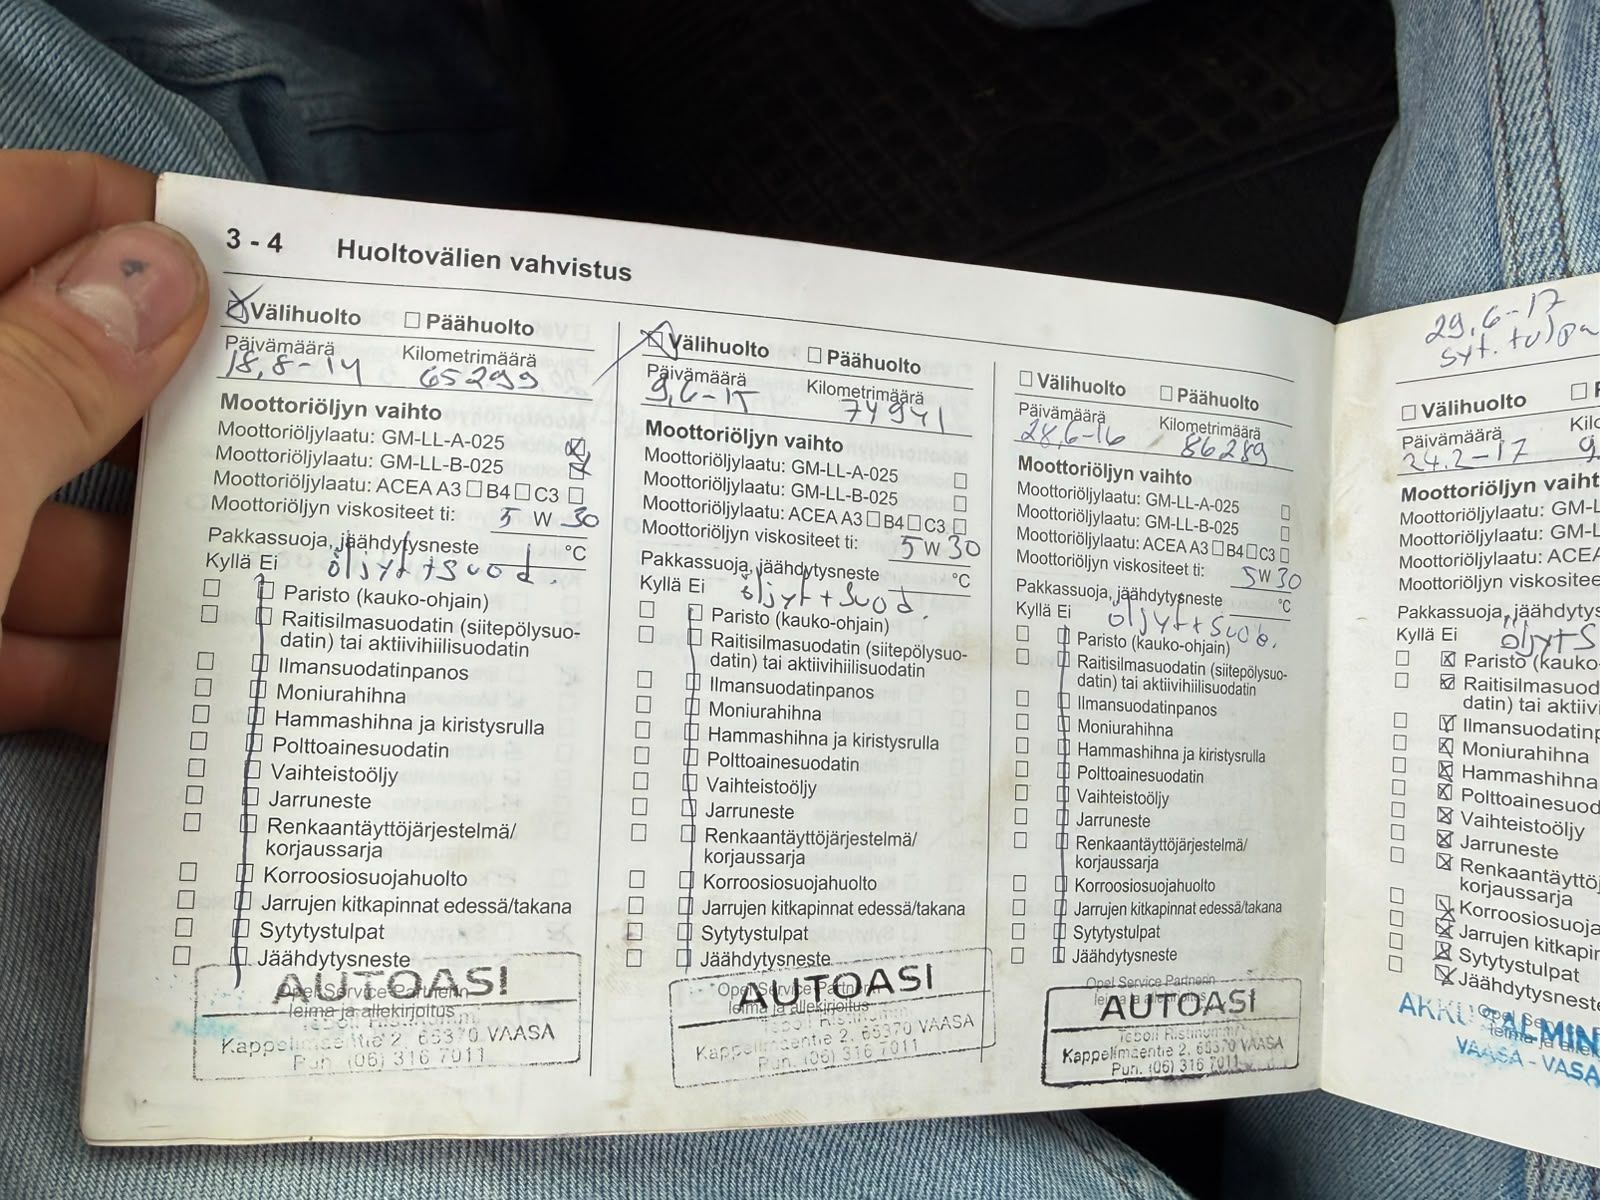 3 - 4 Huoltovälien vahvistus
Välihuolto Päähuolto
Päivämäärä Kilometrimäärä
18,8-14 65299
Moottoriöljyn vaihto
Moottoriöljylaatu: GM-LL-A-025
Moottoriöljylaatu: GM-LL-B-025
Moottoriöljylaatu: ACEA A3 B4 C3
Moottoriöljyn viskositeet ti: 5 W 30
Pakkassuoja, jäähdytysneste °C
Kyllä Ei öljyt+suod.
Paristo (kauko-ohjain)
Raitisilmasuodatin (siitepölysuo-
datin) tai aktiivihiilisuodatin
Ilmansuodatinpanos
Moniurahihna
Hammashihna ja kiristysrulla
Polttoainesuodatin
Vaihteistoöljy
Jarruneste
Renkaantäyttöjärjestelmä/
korjaussarja
Korroosiosuojahuolto
Jarrujen kitkapinnat edessä/takana
Sytytystulpat
Jäähdytysneste
Opel Service Partnerin
AUTOASI
leima ja allekirjoitus
Kappelimäentie 2, 65370 VAASA
Puh. (06) 316 7011
Välihuolto Päähuolto
Päivämäärä Kilometrimäärä
9,6-15 74941
Moottoriöljyn vaihto
Moottoriöljylaatu: GM-LL-A-025
Moottoriöljylaatu: GM-LL-B-025
Moottoriöljylaatu: ACEA A3 B4 C3
Moottoriöljyn viskositeet ti: 5 W 30
Pakkassuoja, jäähdytysneste °C
Kyllä Ei öljyt+suod.
Paristo (kauko-ohjain)
Raitisilmasuodatin (siitepölysuo-
datin) tai aktiivihiilisuodatin
Ilmansuodatinpanos
Moniurahihna
Hammashihna ja kiristysrulla
Polttoainesuodatin
Vaihteistoöljy
Jarruneste
Renkaantäyttöjärjestelmä/
korjaussarja
Korroosiosuojahuolto
Jarrujen kitkapinnat edessä/takana
Sytytystulpat
Jäähdytysneste
Opel Service Partnerin
AUTOASI
leima ja allekirjoitus
Kappelimäentie 2, 65370 VAASA
Puh. (06) 316 7011
Välihuolto Päähuolto
Päivämäärä Kilometrimäärä
28,6-16 86289
Moottoriöljyn vaihto
Moottoriöljylaatu: GM-LL-A-025
Moottoriöljylaatu: GM-LL-B-025
Moottoriöljylaatu: ACEA A3 B4 C3
Moottoriöljyn viskositeet ti: 5W 30
Pakkassuoja, jäähdytysneste °C
Kyllä Ei öljyt+suod.
Paristo (kauko-ohjain)
Raitisilmasuodatin (siitepölysuo-
datin) tai aktiivihiilisuodatin
Ilmansuodatinpanos
Moniurahihna
Hammashihna ja kiristysrulla
Polttoainesuodatin
Vaihteistoöljy
Jarruneste
Renkaantäyttöjärjestelmä/
korjaussarja
Korroosiosuojahuolto
Jarrujen kitkapinnat edessä/takana
Sytytystulpat
Jäähdytysneste
Opel Service Partnerin
leima ja allekirjoitus
AUTOASI
Kappelimäentie 2, 65370 VAASA
Puh. (06) 316 7011
29,6-17
syt. tulpa
Välihuolto
Päivämäärä Kilo
24.2-17 9
Moottoriöljyn vaiht
Moottoriöljylaatu: GM-L
Moottoriöljylaatu: GM-L
Moottoriöljylaatu: ACEA
Moottoriöljyn viskositee
Pakkassuoja, jäähdytys
Kyllä Ei öljyt+S
Paristo (kauko-
Raitisilmasuod
datin) tai aktiivi
Ilmansuodatinp
Moniurahihna
Hammashihna
Polttoainesuod
Vaihteistoöljy
Jarruneste
Renkaantäyttöj
korjaussarja
Korroosiosuoja
Jarrujen kitkapin
Sytytystulpat
Jäähdytysneste
VAASA - VASA